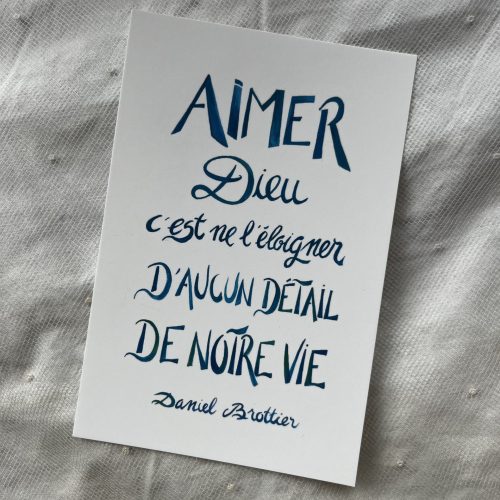 AIMER
Dieu
c'est ne l'éloigner
D'AUCUN DÉTAIL
DE NOTRE VIE
Daniel Brottier